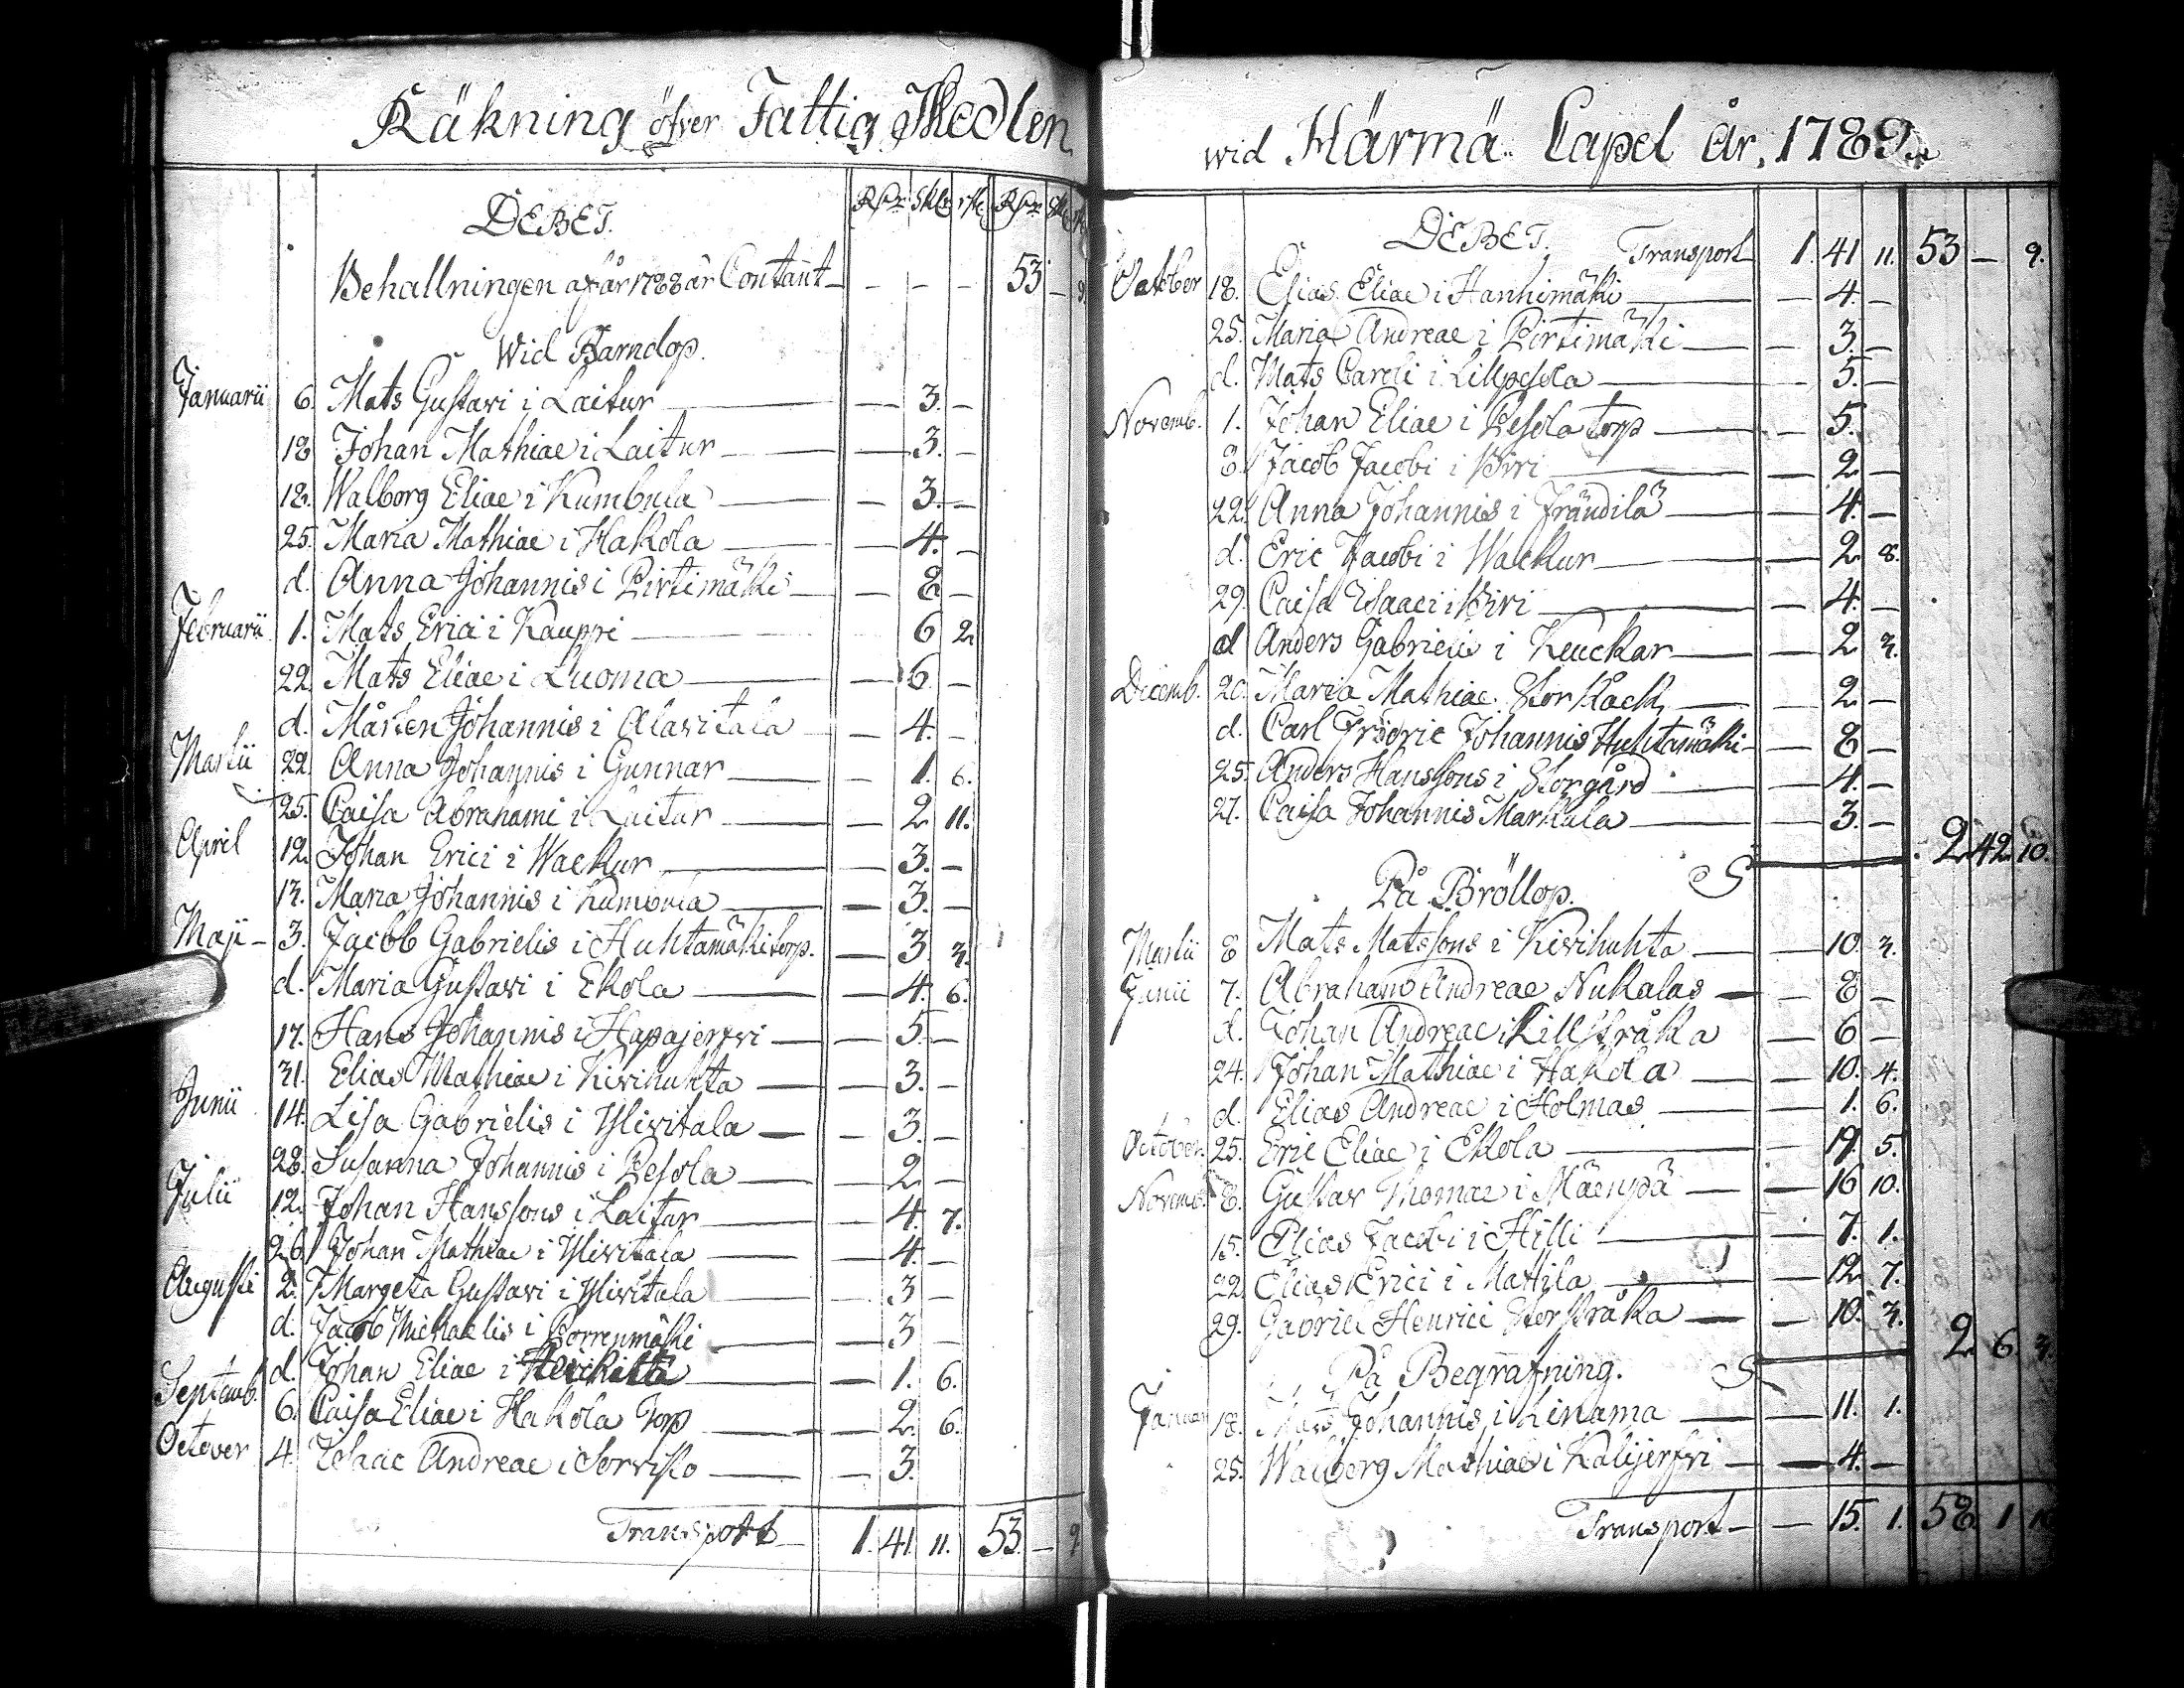 Räkning öfver Fattig Medlen
DEBET. Rdr Sk. rst. Rdr Sk. rst.
Behallningen af år 1788 är Contant — — — — 53 — 9.
Wid Barndop.
Januarii 6. Mats Gustavi i Laitur — 3. —
18 Johan Mathiae i Laitur — 3. —
18. Walborg Eliae i Kumbula — 3. —
25. Maria Mathiae i Hakola — 4. —
d. Anna Johannis i Pirtimäki — 8 —
Februarii 1. Mats Erici i Kauppi 6 2
22. Mats Eliae i Luoma — 6 —
d. Mårten Johannis i Alavitala — 4. —
Martii 22. Anna Johannis i Gunnar — 1. 6.
25. Caisa Abrahami i Laitur — 2 11.
April 12. Johan Erici i Wackur — 3. —
13. Maria Johannis i Kumbula — 3. —
Maji — 3. Jacob Gabrielis i Huhtamäki torp. — 3. 3.
d. Maria Gustavi i Ekola — 4. 6.
17. Hans Johannis i Hapajerfvi — 5. —
31. Elias Mathiae i Kivihuhta — 3. —
Junii 14. Lisa Gabrielis i Ylivitala — 3. —
28. Susanna Johannis i Pesola — 2 —
Julii 12. Johan Hanssons i Laitur — 4. 7.
26. Johan Mathiae i Ylivitala — 4. —
Augusti 2. Margeta Gustavi i Ylivitala — 3 —
d. Jacob Michaelis i Porrenmäki — 3 —
d. Johan Eliae i — 1. 6.
Septemb. 6. Caisa Eliae i Hakola Torp — 2. 6.
October 4. Isaac Andreae i Sorvisto — 3.
Transport — 1. 41. 11. 53. — 9
wid Härmä Capel År, 1789.
DEBET. Transport 1. 41 11. 53 — 9.
October 18. Elias Eliae i Hanhimäki — 4. —
25. Maria Andreae i Pirtimäki — 3. —
d. Mats Caroli i Lillpesola — 5. —
Novemb. 1. Johan Eliae i Pesola torp — 5.
8. Jacob Jacobi i Biri — 2 —
22. Anna Johannis i Frändilä — 4. —
d. Eric Jacobi i Wackur — 2 8.
29. Caisa Isaaci i Biri — 4. —
d Anders Gabrielis i Keuckar — 2 3.
Dicemb. 20. Maria Mathiae Storkåck — 2 —
d. Carl Fridric Johannis Huhtamäki — 8 —
25. Anders Hanssons i Storgård — 4. —
27. Caisa Johannis Markula — 3. —
S — 2 42. 10.
På Bröllop.
Martii 8 Mats Matssons i Kivihuhta — 10. 3.
Junii 7. Abraham Andreae Nukalas — 8 —
d. Johan Andreae i Lillstråka — 6 —
24. Johan Mathiae i Hakola — 10. 4.
d. Elias Andreae i Holmas — 1. 6.
October 25. Eric Eliae i Ekola — 19. 5.
Novemb. 8. Gustav Thomae i Mäenpä — 16 10.
15. Elias Jacobi i Hilli — 7. 1.
22. Elias Erici i Mattila — 12 7.
29. Gabriel Henrici Storstråka — 10. 3.
S — 2 6. 3.
På Begrafning.
Januar 18. Mats Johannis i Linama — 11. 1.
25. Walborg Mathiae i Kalijerfvi — 4. —
Transport — — 15. 1. 58. 1 10